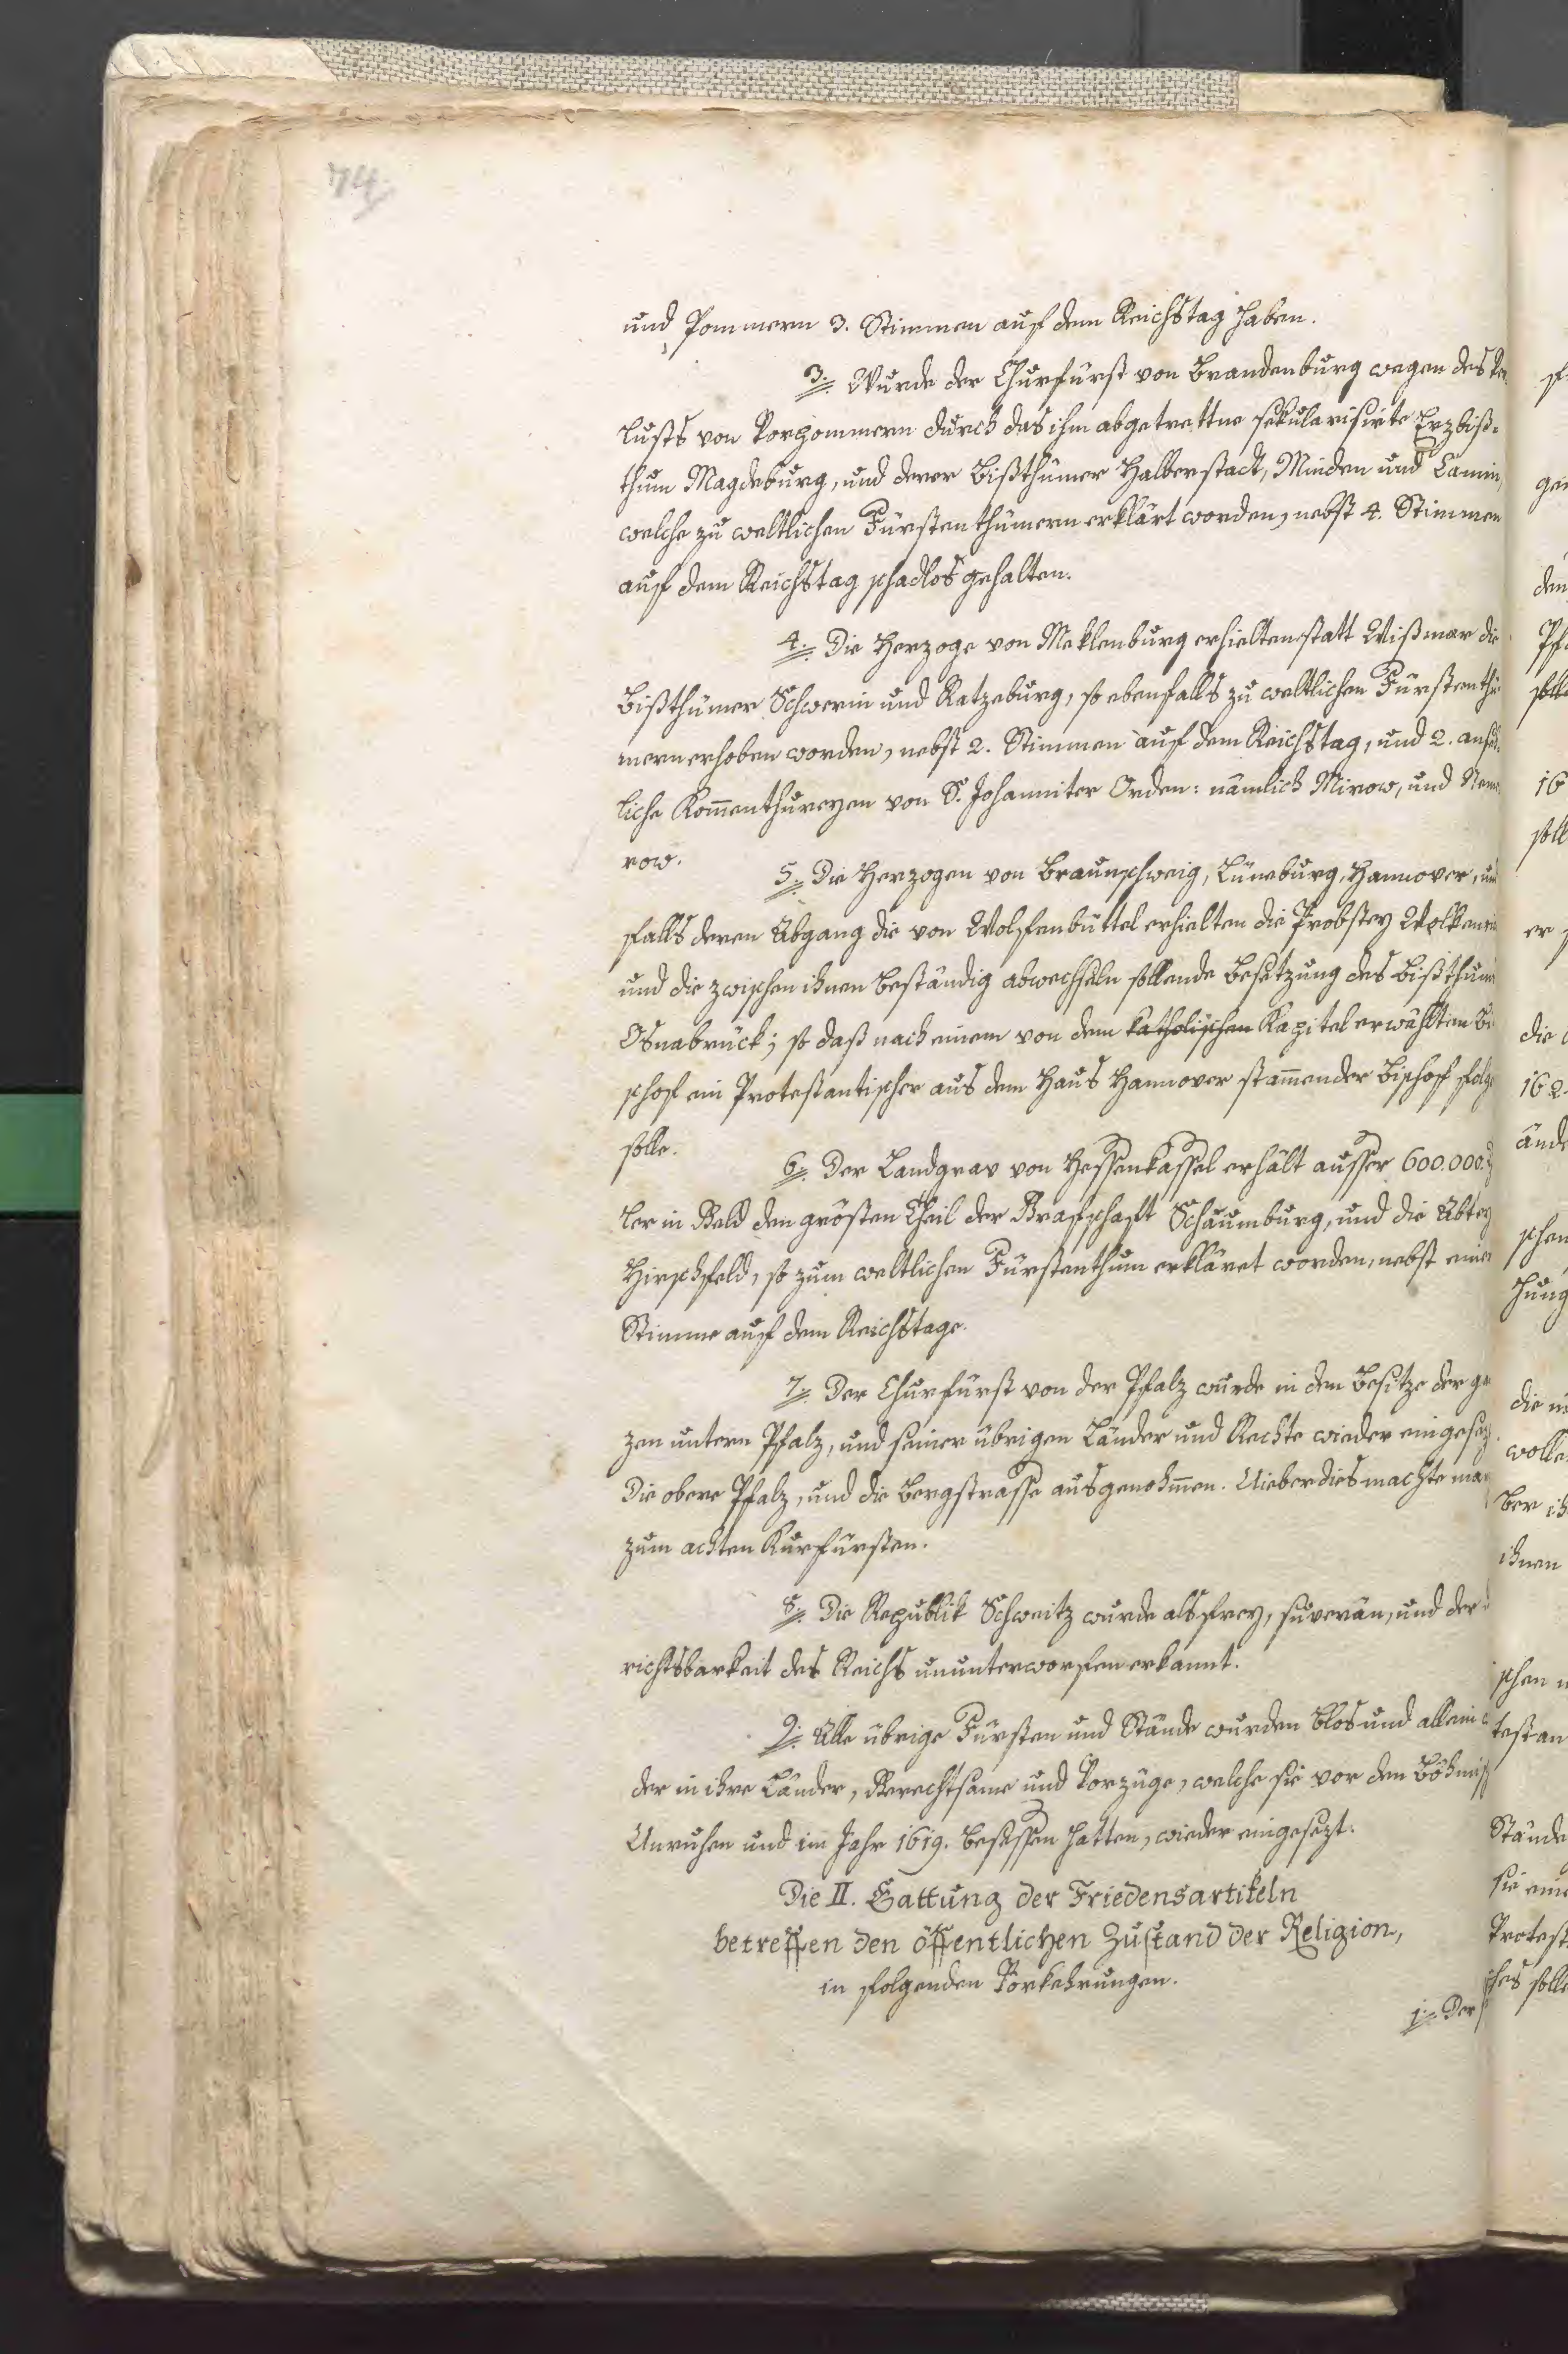 74
und Pommern 3. Stimmen auf dem Reichstag haben.
3. Wurde der Churfürst von Brandenburg wegen des Ver
lusts von Vorpommern durch das ihm abgetrettne sekularisirte Erzbiß=
thum Magdeburg, und derer Bißthümer Halberstadt, Minden und Camin,
welche zu weltlichen Fürstenthümern erklärt worden, nebst 4. Stimmen
auf dem Reichstag schadlos gehalten.
4. Die Herzoge von Meklenburg erhielten statt Wißmar die
Bißthümer Schwerin und Ratzeburg, so ebenfalls zu weltlichen Fürstenthü
mern erhoben worden, nebst 2. Stimmen auf dem Reichstag, und 2. ansehn
liche Kom̄enthureyen von S. Johanniter Orden: nämlich Mirow, und Neme
row.
5. Die Herzogen von Braunschweig, Lüneburg, Hannover, und
falls deren Abgang die von Wolfenbüttel erhielten die Probstey Wolkenri
und die zwischen ihnen beständig abwechseln sollende Besetzung des Bißthums
Osnabrück; so daß nach einem von dem katholischen Kapitel erwählten Bi
schof ein Protestantischer aus dem Haus Hannover stam̄ender Bischof folge
solle.
6. Der Landgrav von Hessenkassel erhält ausser 600.000.
ler in Geld den grösten Theil der Grafschaft Schaumburg, und die Abtey
Hirschfeld, so zum weltlichen Fürstenthum erkläret worden, nebst einer
Stimme auf dem Reichstage.
7. Der Churfürst von der Pfalz wurde in dem Besitze der ga
zen untern Pfalz, und seiner übrigen Länder und Rechte wieder eingesez
Die obere Pfalz, und die Bergstrasse ausgenohm̄en. Uieberdies machte man
zum achten Kurfürsten.
8. Die Republik Schweitz wurde als frey, suverän, und der
richtsbarkeit des Reichs ununterworfen erkannt.
9. Alle übrige Fürsten und Stände wurden blos und allein
der in ihre Länder, Gerechtsame und Vorzüge, welche sie vor den Böhmisch
Unruhen und im Jahr 1619. besessen hatten, wieder eingesezt.
Die II. Gattung der Friedensartikeln
betreffen den öffentlichen Zustand der Religion,
in folgenden Vorkehrungen.
1. Der
den
16
er
die
162.
ände
schen
hung
wolle
ber ih
ihnen
schen
testan
Stände
sie eine
Protest